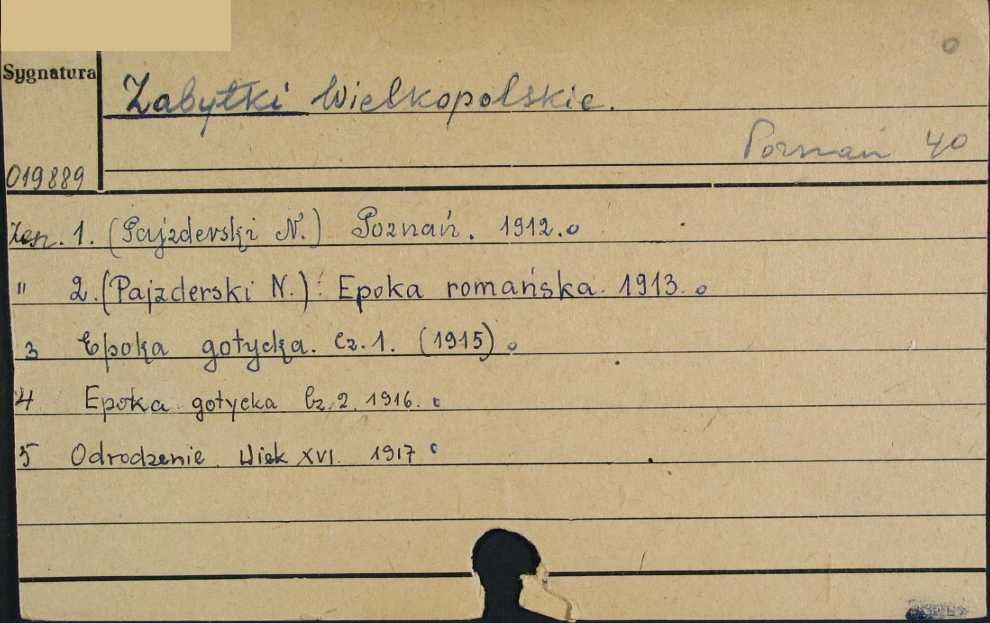 Sygnatura
Zabytki Wielkopolskie.
Poznań 4o
019889
Zesz. 1. (Pajzderski N.) Poznań. 1912.
" 2. (Pajzderski N.): Epoka romańska. 1913.
3 Epoka gotycka. Cz. 1. (1915)
4 Epoka gotycka Cz. 2. 1916.
5 Odrodzenie. Wiek XVI. 1917